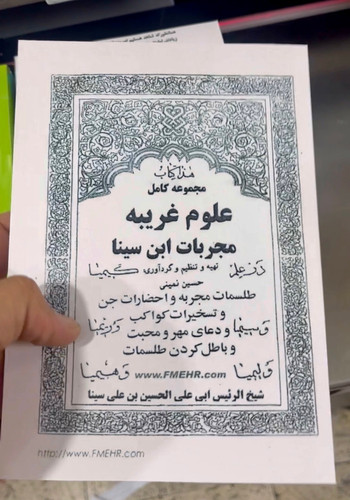 هذا کتاب
مجموعه کامل
علوم غریبه
مجربات ابن سینا
در علم تهیه و تنظیم و گردآوری کیمیا
حسین نمینی
طلسمات مجربه و احضارات جن
و تسخیرات کواکب
و سیمیا و دعای مهر و محبت و ریمیا
و باطل کردن طلسمات
و لیمیا www.FMEHR.com و هیمیا
شیخ الرئیس ابی علی الحسین بن علی سینا
http://www.FMEHR.com